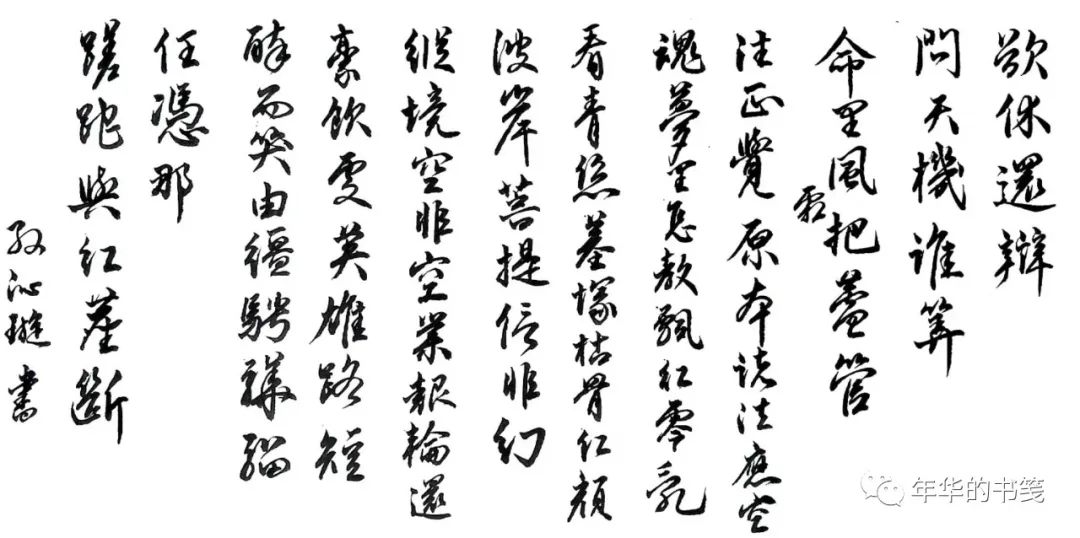 欲休還辯
問天機誰算
命里風霜把管
法正覺原本法應空
魂夢里怎教飄紅零亂
看青絲墓塚枯骨紅顏
彼岸菩提信非幻
縱境空非空業報輪還
豪飲處英雄路短
醉而笑由韁騁驊騮
任憑那
蹉跎與紅塵斷
孫沁璇書
年华的书笺